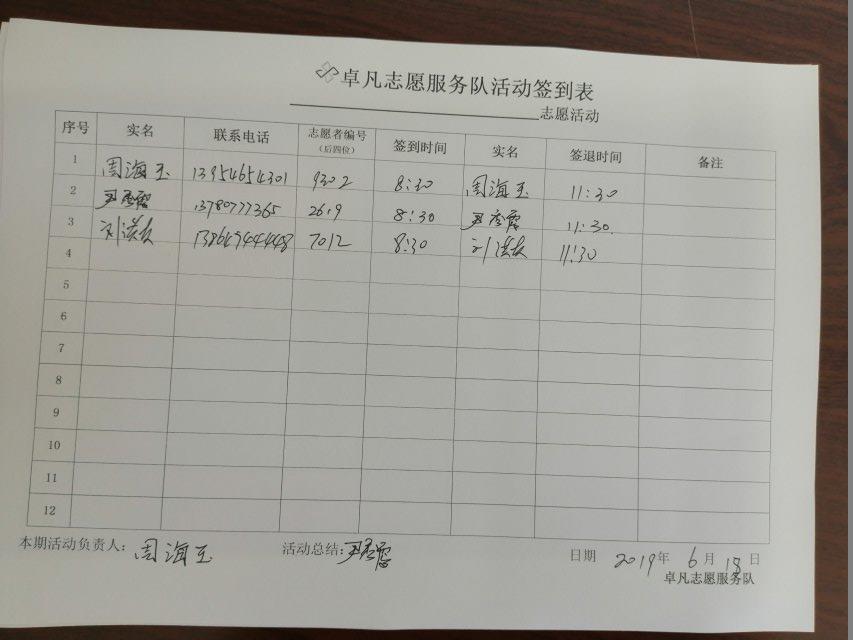 卓凡志愿服务队活动签到表
志愿活动
序号 实名 联系电话 志愿者编号（后四位） 签到时间 实名 签退时间 备注
1 周海玉 13954654301 9302 8:30 周海玉 11:30
2 13780777365 2619 8:30 11:30
3 刘洪友 13864944448 7012 8:30 刘洪友 11:30
4
5
6
7
8
9
10
11
12
本期活动负责人：周海玉 活动总结： 日期 2019年 6月 18日
卓凡志愿服务队